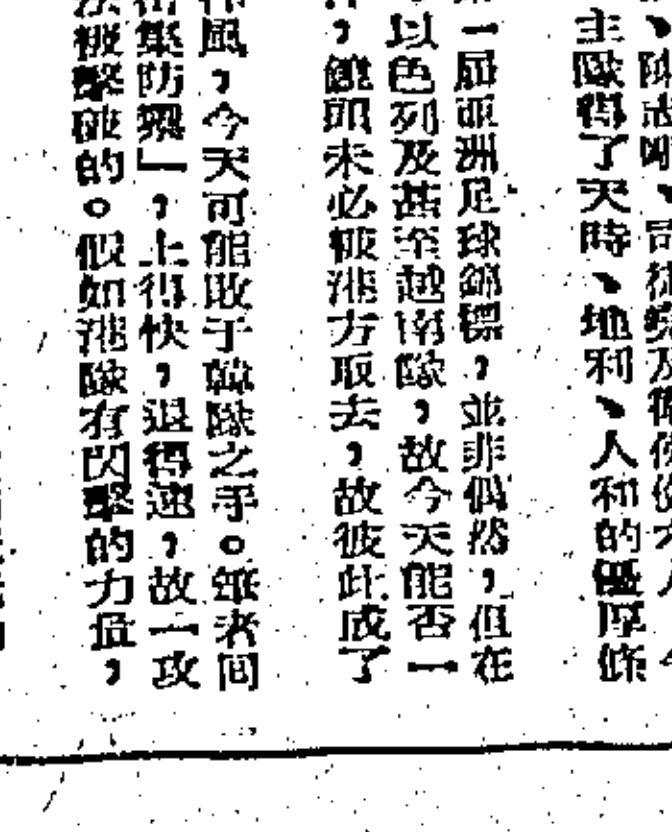 、陳志
主隊得了天時、地利、人和的優厚條
一屆亞洲足球錦標，並非偶然，但在
以色列及甚至越南隊，故今天能否一
，鏡頭未必被港方取去，故彼此成了
風，今天可能敗于韓隊之手。筆者間
集防禦」，上得快，退得速，故一攻
被擊破的。假如港隊有閃擊的力量，